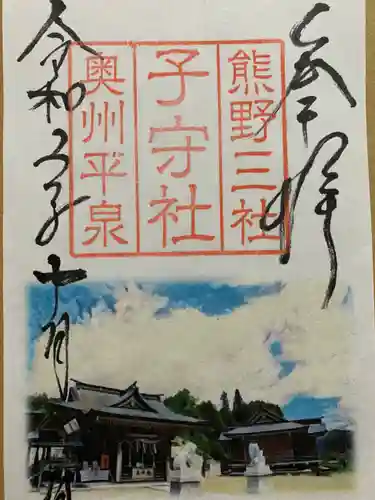 奉拝
熊野三社
子守社
奥州平泉
令和
年十月